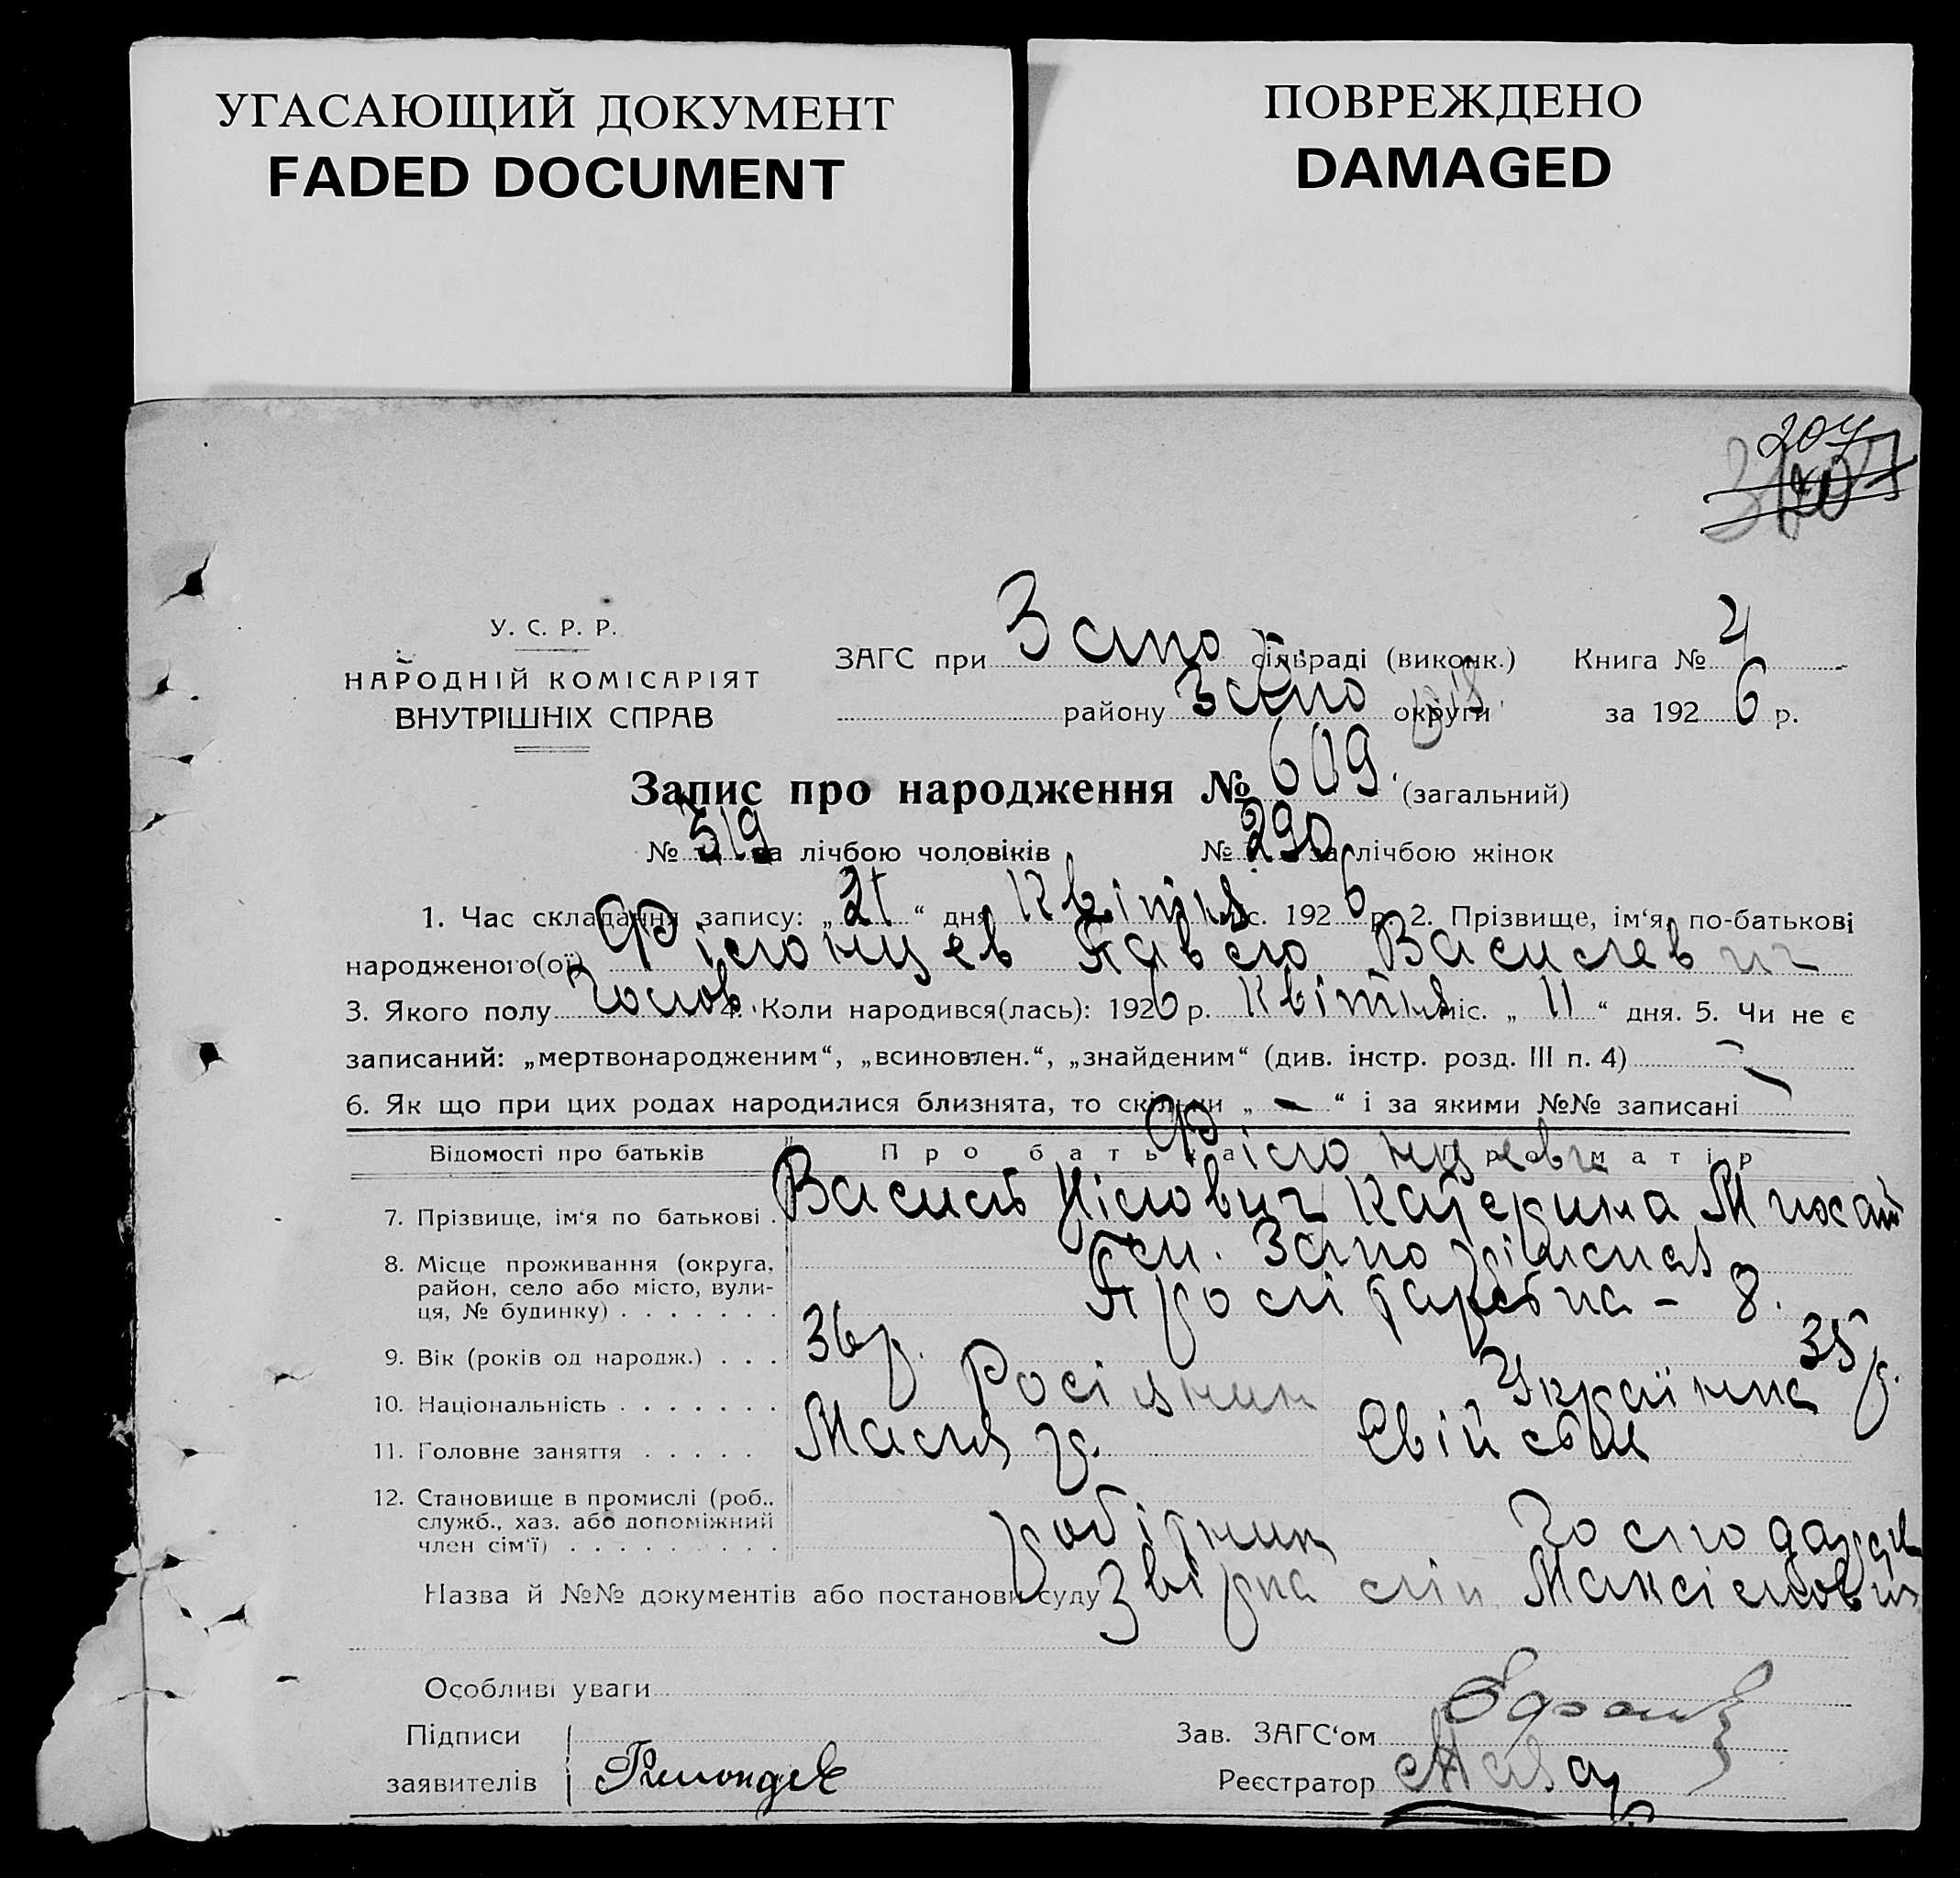 УГАСАЮЩИЙ ДОКУМЕНТ
FADED DOCUMENT
ПОВРЕЖДЕНО
DAMAGED
204
У. С. Р. Р.
НАРОДНІЙ КОМІСАРІЯТ
ВНУТРІШНІХ СПРАВ
ЗАГС при Запо сільраді (виконк.) Книга № 4
району Запо округи за 1926 р.
Запис про народження № 609. (загальний)
№ 319 за лічбою чоловіків № 290 за лічбою жінок
1. Час складання запису: „21“ дня Квітня міс. 1926 р. 2. Прізвище, ім‘я, по-батькові
народженого(ої) Філонцев Павло Василевич
3. Якого полу Чолов. 4. Коли народився(лась): 1926 р. Квітня міс. „11“ дня. 5. Чи не є
записаний: „мертвонародженим“, „всиновлен.“, „знайденим“ (див. інстр. розд. III п. 4) —
6. Як що при цих родах народилися близнята, то скільки „ — “ і за якими №№ записані
Відомості про батьків Про батька Про матір
Філонцеви
7. Прізвище, ім‘я по батькові . Василь Нілович Катерина Михай
8. Місце проживання (округа, район, село або місто, вули-ця, № будинку) . . . . . . . ст. Запоріжжя
Пролітарська - 8.
9. Вік (років од народж.) . . . 36 р. 35 р.
10. Національність . . . . . . . Росіянин Українка
11. Головне заняття . . . . . Маляр. Свійськ
12. Становище в промислі (роб., служб., хаз. або допоміжний член сім‘ї) . . . . . . . . . робітник господар
Назва й №№ документів або постанови суду
Особливі уваги
Підписи
заявителів Филонцев
Зав. ЗАГС‘ом
Реєстратор